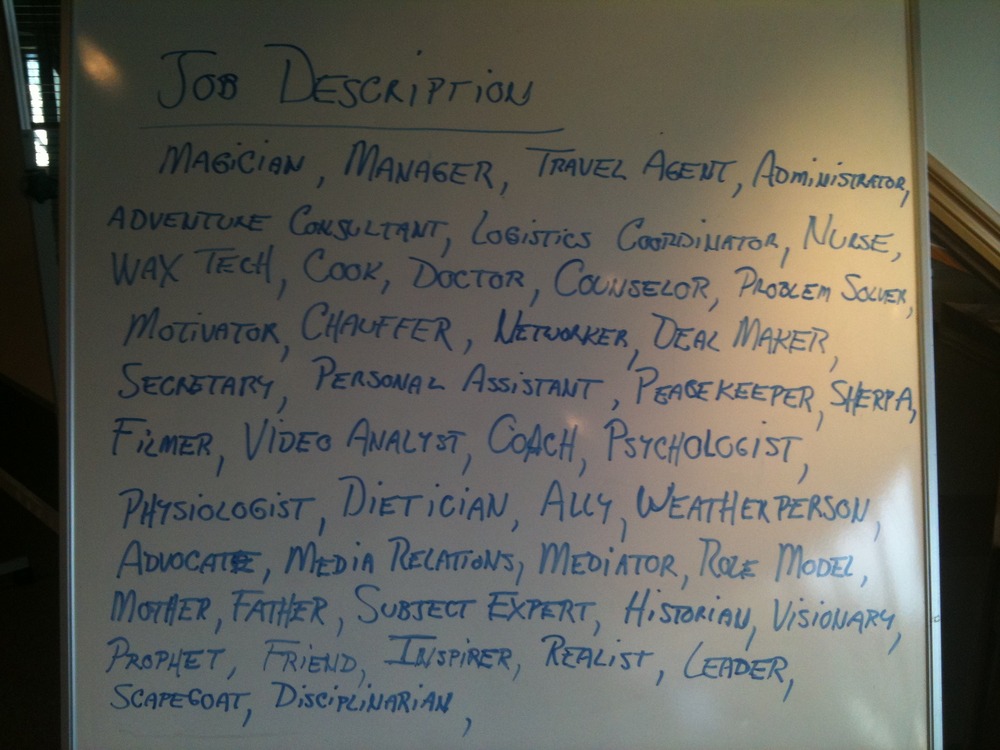 JOB DESCRIPTION
MAGICIAN, MANAGER, TRAVEL AGENT, ADMINISTRATOR,
ADVENTURE CONSULTANT, LOGISTICS COORDINATOR, NURSE,
WAX TECH, COOK, DOCTOR, COUNSELOR, PROBLEM SOLVER,
MOTIVATOR, CHAUFFER, NETWORKER, DEAL MAKER,
SECRETARY, PERSONAL ASSISTANT, PEACEKEEPER, SHERPA,
FILMER, VIDEO ANALYST, COACH, PSYCHOLOGIST,
PHYSIOLOGIST, DIETICIAN, ALLY, WEATHERPERSON,
ADVOCATE, MEDIA RELATIONS, MEDIATOR, ROLE MODEL,
MOTHER, FATHER, SUBJECT EXPERT, HISTORIAN, VISIONARY,
PROPHET, FRIEND, INSPIRER, REALIST, LEADER,
SCAPEGOAT, DISCIPLINARIAN,